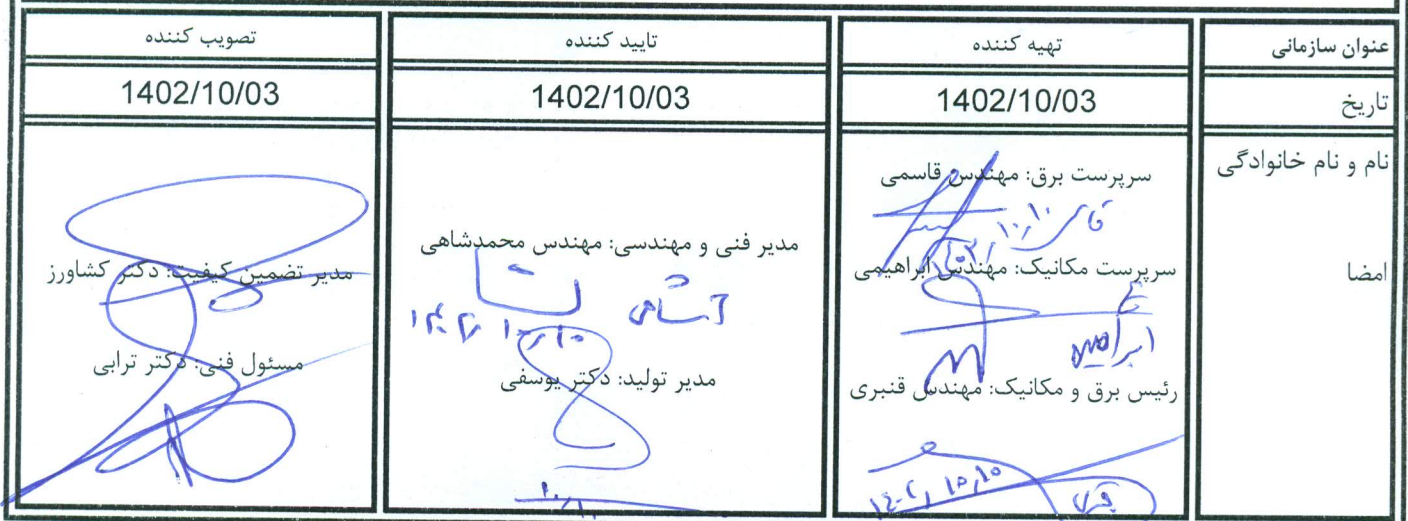 عنوان سازمانی تهیه کننده تایید کننده تصویب کننده
تاریخ 1402/10/03 1402/10/03 1402/10/03
نام و نام خانوادگی
امضا
سرپرست برق: مهندس قاسمی
سرپرست مکانیک: مهندس ابراهیمی
رئیس برق و مکانیک: مهندس قنبری
۱۴۰۲/۱۰/۱۰
مدیر فنی و مهندسی: مهندس محمدشاهی
۱۴۰۲/۱۰/۱۰
مدیر تولید: دکتر یوسفی
مدیر تضمین کیفیت: دکتر کشاورز
مسئول فنی: دکتر ترابی